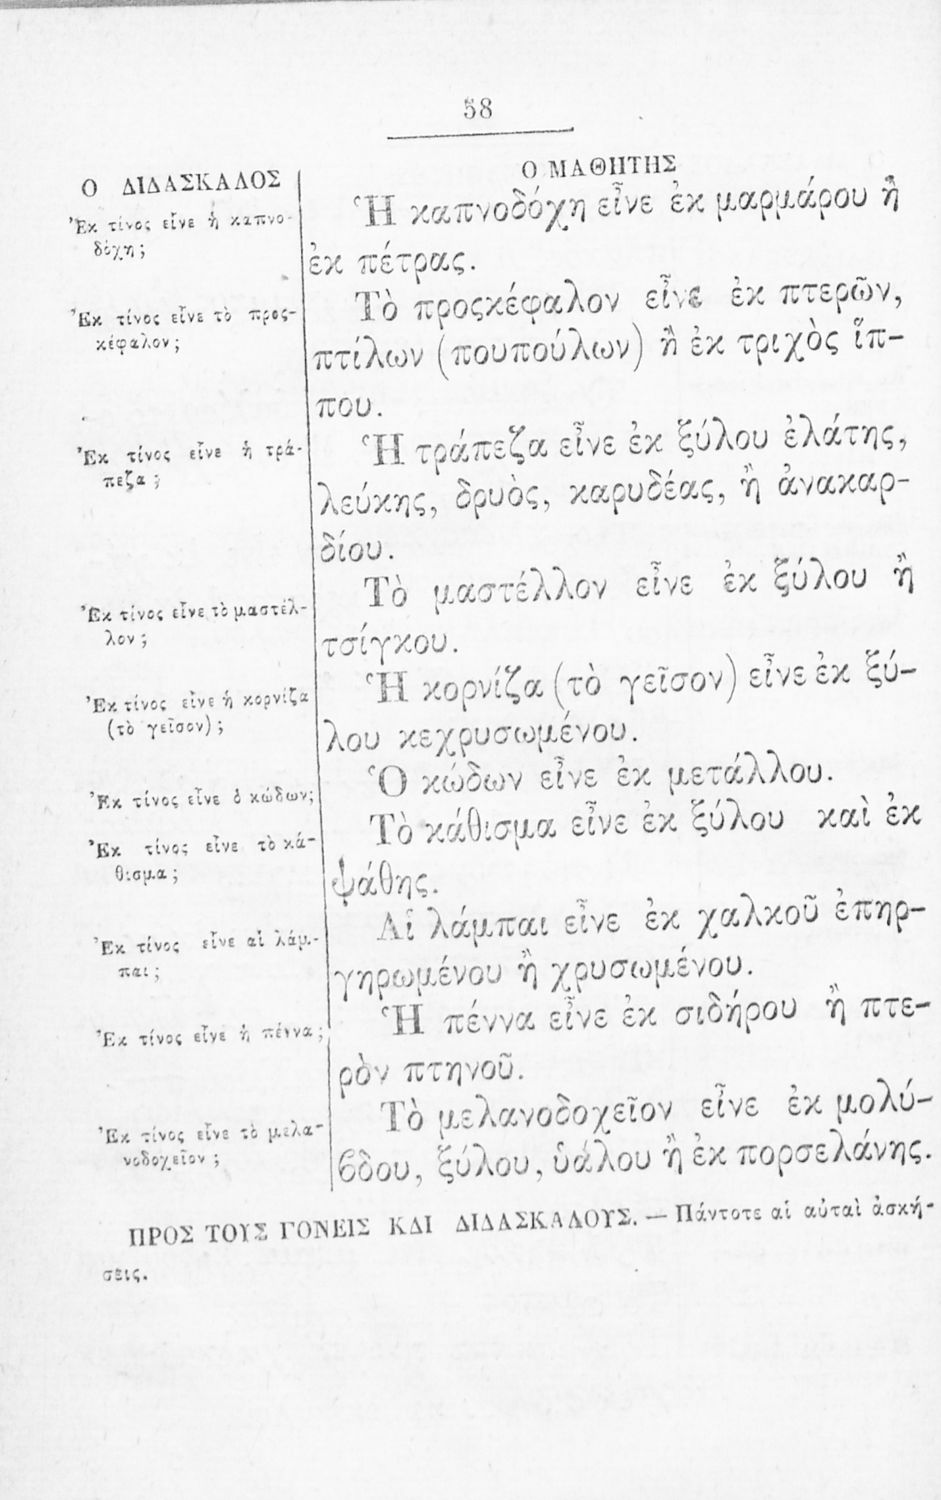 58
Ο ΔΙΔΑΣΚΑΛΟΣ
Ο ΜΑΘΗΤΗΣ
Ἐκ τίνος εἶνε ἡ καπνο-
δόχη;
Ἡ καπνοδόχη εἶνε ἐκ μαρμάρου ἢ
ἐκ πέτρας.
Ἐκ τίνος εἶνε τὸ προς-
κέφαλον;
Τὸ προςκέφαλον εἶνε ἐκ πτερῶν,
πτίλων (πουπούλων) ἢ ἐκ τριχὸς ἵπ-
που.
Ἐκ τίνος εἶνε ἡ τρά-
πεζα;
Ἡ τράπεζα εἶνε ἐκ ξύλου ἐλάτης,
λεύκης, δρυὸς, καρυδέας, ἢ ἀνακαρ-
δίου.
Ἐκ τίνος εἶνε τὸ μαστέλ-
λον;
Τὸ μαστέλλον εἶνε ἐκ ξύλου ἢ
τσίγκου.
Ἐκ τίνος εἶνε ἡ κορνίζα
(τὸ γεῖσον);
Ἡ κορνίζα (τὸ γεῖσον) εἶνε ἐκ ξύ-
λου κεχρυσωμένου.
Ἐκ τίνος εἶνε ὁ κώδων;
Ὁ κώδων εἶνε ἐκ μετάλλου.
Ἐκ τίνος εἶνε τὸ κά-
θισμα;
Τὸ κάθισμα εἶνε ἐκ ξύλου καὶ ἐκ
ψάθης.
Ἐκ τίνος εἶνε αἱ λάμ-
παι;
Αἱ λάμπαι εἶνε ἐκ χαλκοῦ ἐπηρ-
γηρωμένου ἢ χρυσωμένου.
Ἐκ τίνος εἶνε ἡ πέννα;
Ἡ πέννα εἶνε ἐκ σιδήρου ἢ πτε-
ρὸν πτηνοῦ.
Ἐκ τίνος εἶνε τὸ μελα-
νοδοχεῖον;
Τὸ μελανοδοχεῖον εἶνε ἐκ μολύ-
βδου, ξύλου, ὑάλου ἢ ἐκ πορσελάνης.
ΠΡΟΣ ΤΟΥΣ ΓΟΝΕΙΣ ΚΔΙ ΔΙΔΑΣΚΑΛΟΥΣ. — Πάντοτε αἱ αὐταὶ ἀσκή-
σεις.